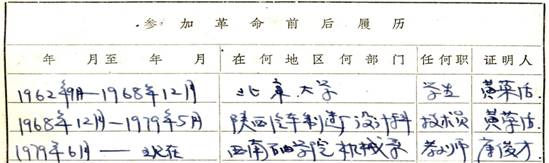 参加革命前后履历
年 月至 年 月 在何地区何部门 任何职 证明人
1962年9月—1968年12月 北京大学 学生 黄荣佑
1968年12月—1979年5月 陕西汽车制造厂设计科 技术员 黄荣佑
1979年6月——现在 西南石油学院机械系 教师 唐俊才